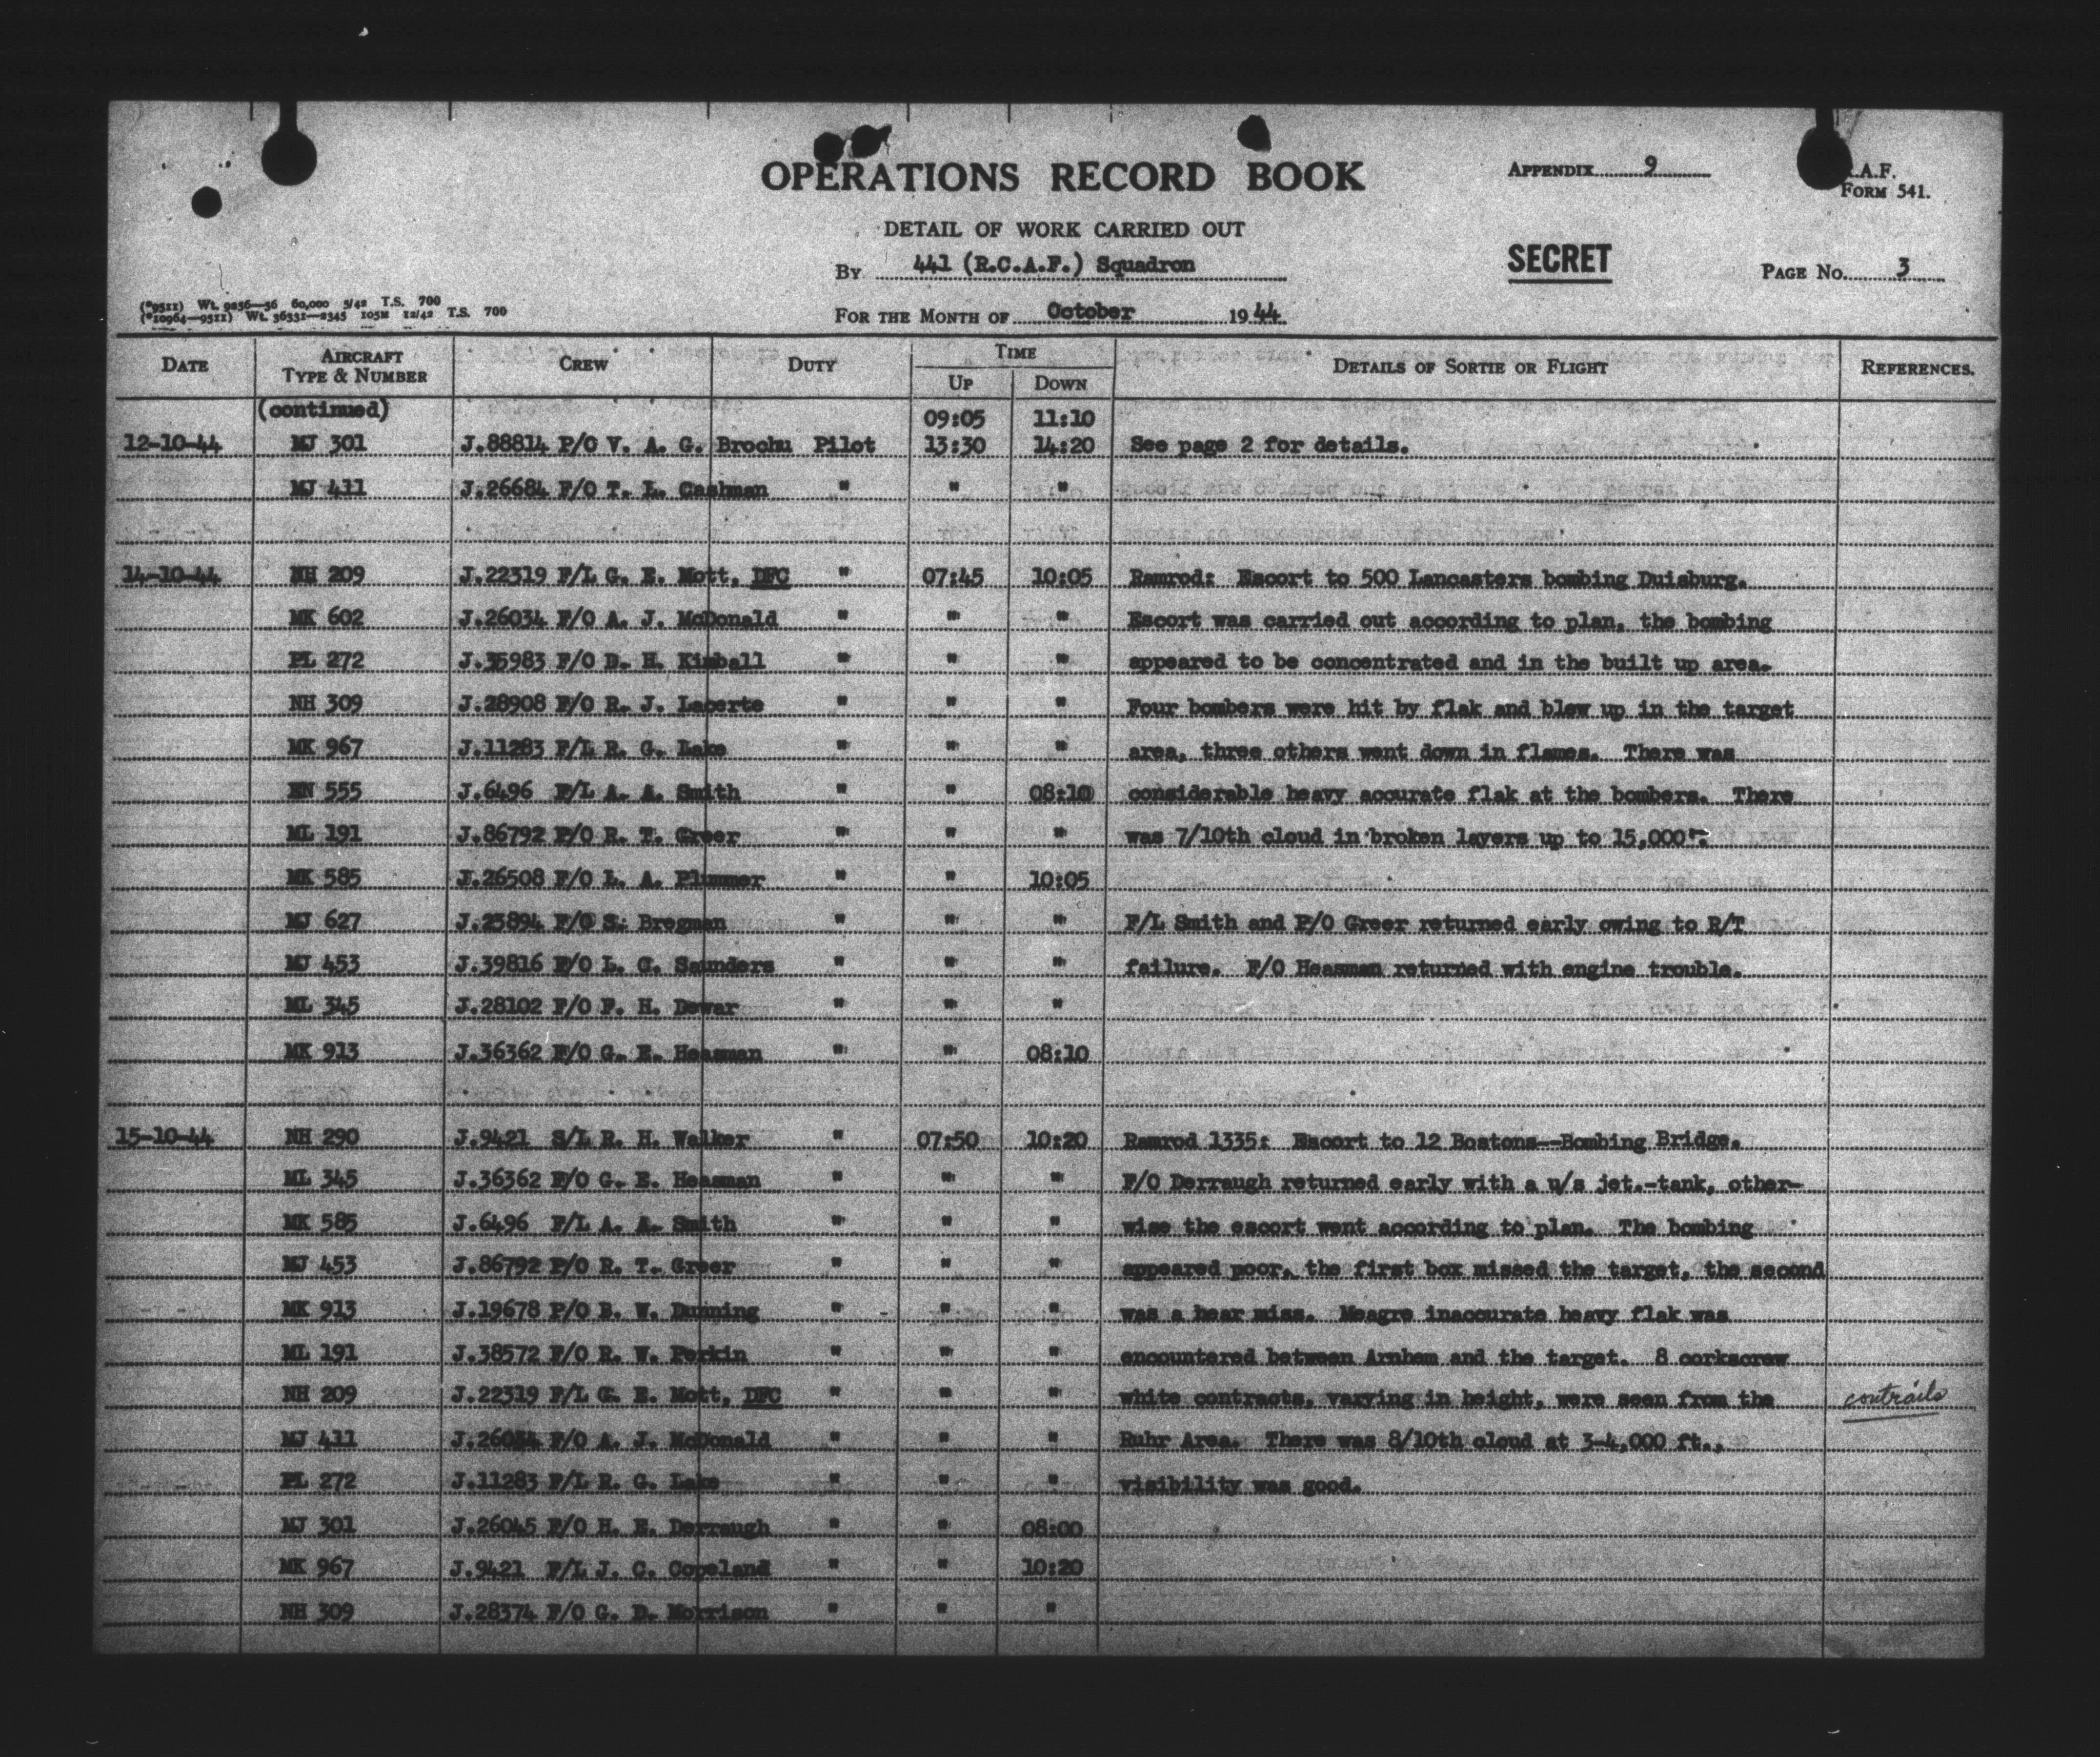 OPERATIONS RECORD BOOK
APPENDIX 9
R.A.F. FORM 541.
DETAIL OF WORK CARRIED OUT
BY 441 (R.C.A.F.) Squadron
SECRET
PAGE No. 3
(*9511) Wt. 9256—56 60,000 5/42 T.S. 700
(*10964—9511) Wt. 36331—2345 105M 12/42 T.S. 700
FOR THE MONTH OF October 1944.
DATE AIRCRAFT TYPE & NUMBER CREW DUTY TIME UP DOWN DETAILS OF SORTIE OR FLIGHT REFERENCES.
(continued) 09:05 11:10
12-10-44 MJ 301 J.88814 P/O V. A. G. Brochu Pilot 13:30 14:20 See page 2 for details.
MJ 411 J.26684 F/O T. L. Cashman " " "
14-10-44 NH 209 J.22319 F/L G. E. Mott, DFC " 07:45 10:05 Ramrod: Escort to 500 Lancasters bombing Duisburg.
MK 602 J.26034 F/O A. J. McDonald " " " Escort was carried out according to plan, the bombing
PL 272 J.35983 F/O D. H. Kimball " " " appeared to be concentrated and in the built up area.
NH 309 J.28908 F/O R. J. Lacerte " " " Four bombers were hit by flak and blew up in the target
MK 967 J.11283 F/L R. G. Lake " " " area, three others went down in flames. There was
EN 555 J.6496 F/L A. A. Smith " " 08:10 considerable heavy accurate flak at the bombers. There
ML 191 J.86792 P/O R. T. Greer " " " was 7/10th cloud in broken layers up to 15,000'.
MK 585 J.26508 F/O L. A. Plummer " " 10:05
MJ 627 J.23894 F/O S. Bregman " " " F/L Smith and P/O Greer returned early owing to R/T
MJ 453 J.39816 F/O L. G. Saunders " " " failure. F/O Heasman returned with engine trouble.
ML 345 J.28102 F/O F. H. Dewar " " "
MK 913 J.36362 F/O G. E. Heasman " " 08:10
15-10-44 NH 290 J.9421 S/L R. H. Walker " 07:50 10:20 Ramrod 1335: Escort to 12 Bostons--Bombing Bridge.
ML 345 J.36362 F/O G. E. Heasman " " " F/O Derraugh returned early with a u/s jet.-tank, other-
MK 585 J.6496 F/L A. A. Smith " " " wise the escort went according to plan. The bombing
MJ 453 J.86792 P/O R. T. Greer " " " appeared poor, the first box missed the target, the second
MK 913 J.19678 P/O B. W. Dunning " " " was a hear miss. Meagre inaccurate heavy flak was
ML 191 J.38572 F/O R. W. Perkin " " " encountered between Arnhem and the target. 8 corkscrew
NH 209 J.22319 F/L G. E. Mott, DFC " " " white contracts, varying in height, were seen from the contrails
MJ 411 J.26034 F/O A. J. McDonald " " " Ruhr Area. There was 8/10th cloud at 3-4,000 ft.,
PL 272 J.11283 F/L R. G. Lake " " " visibility was good.
MJ 301 J.26045 F/O H. E. Derraugh " " 08:00
MK 967 J.9421 F/L J. C. Copeland " " 10:20
NH 309 J.28374 F/O G. D. Morrison " " "